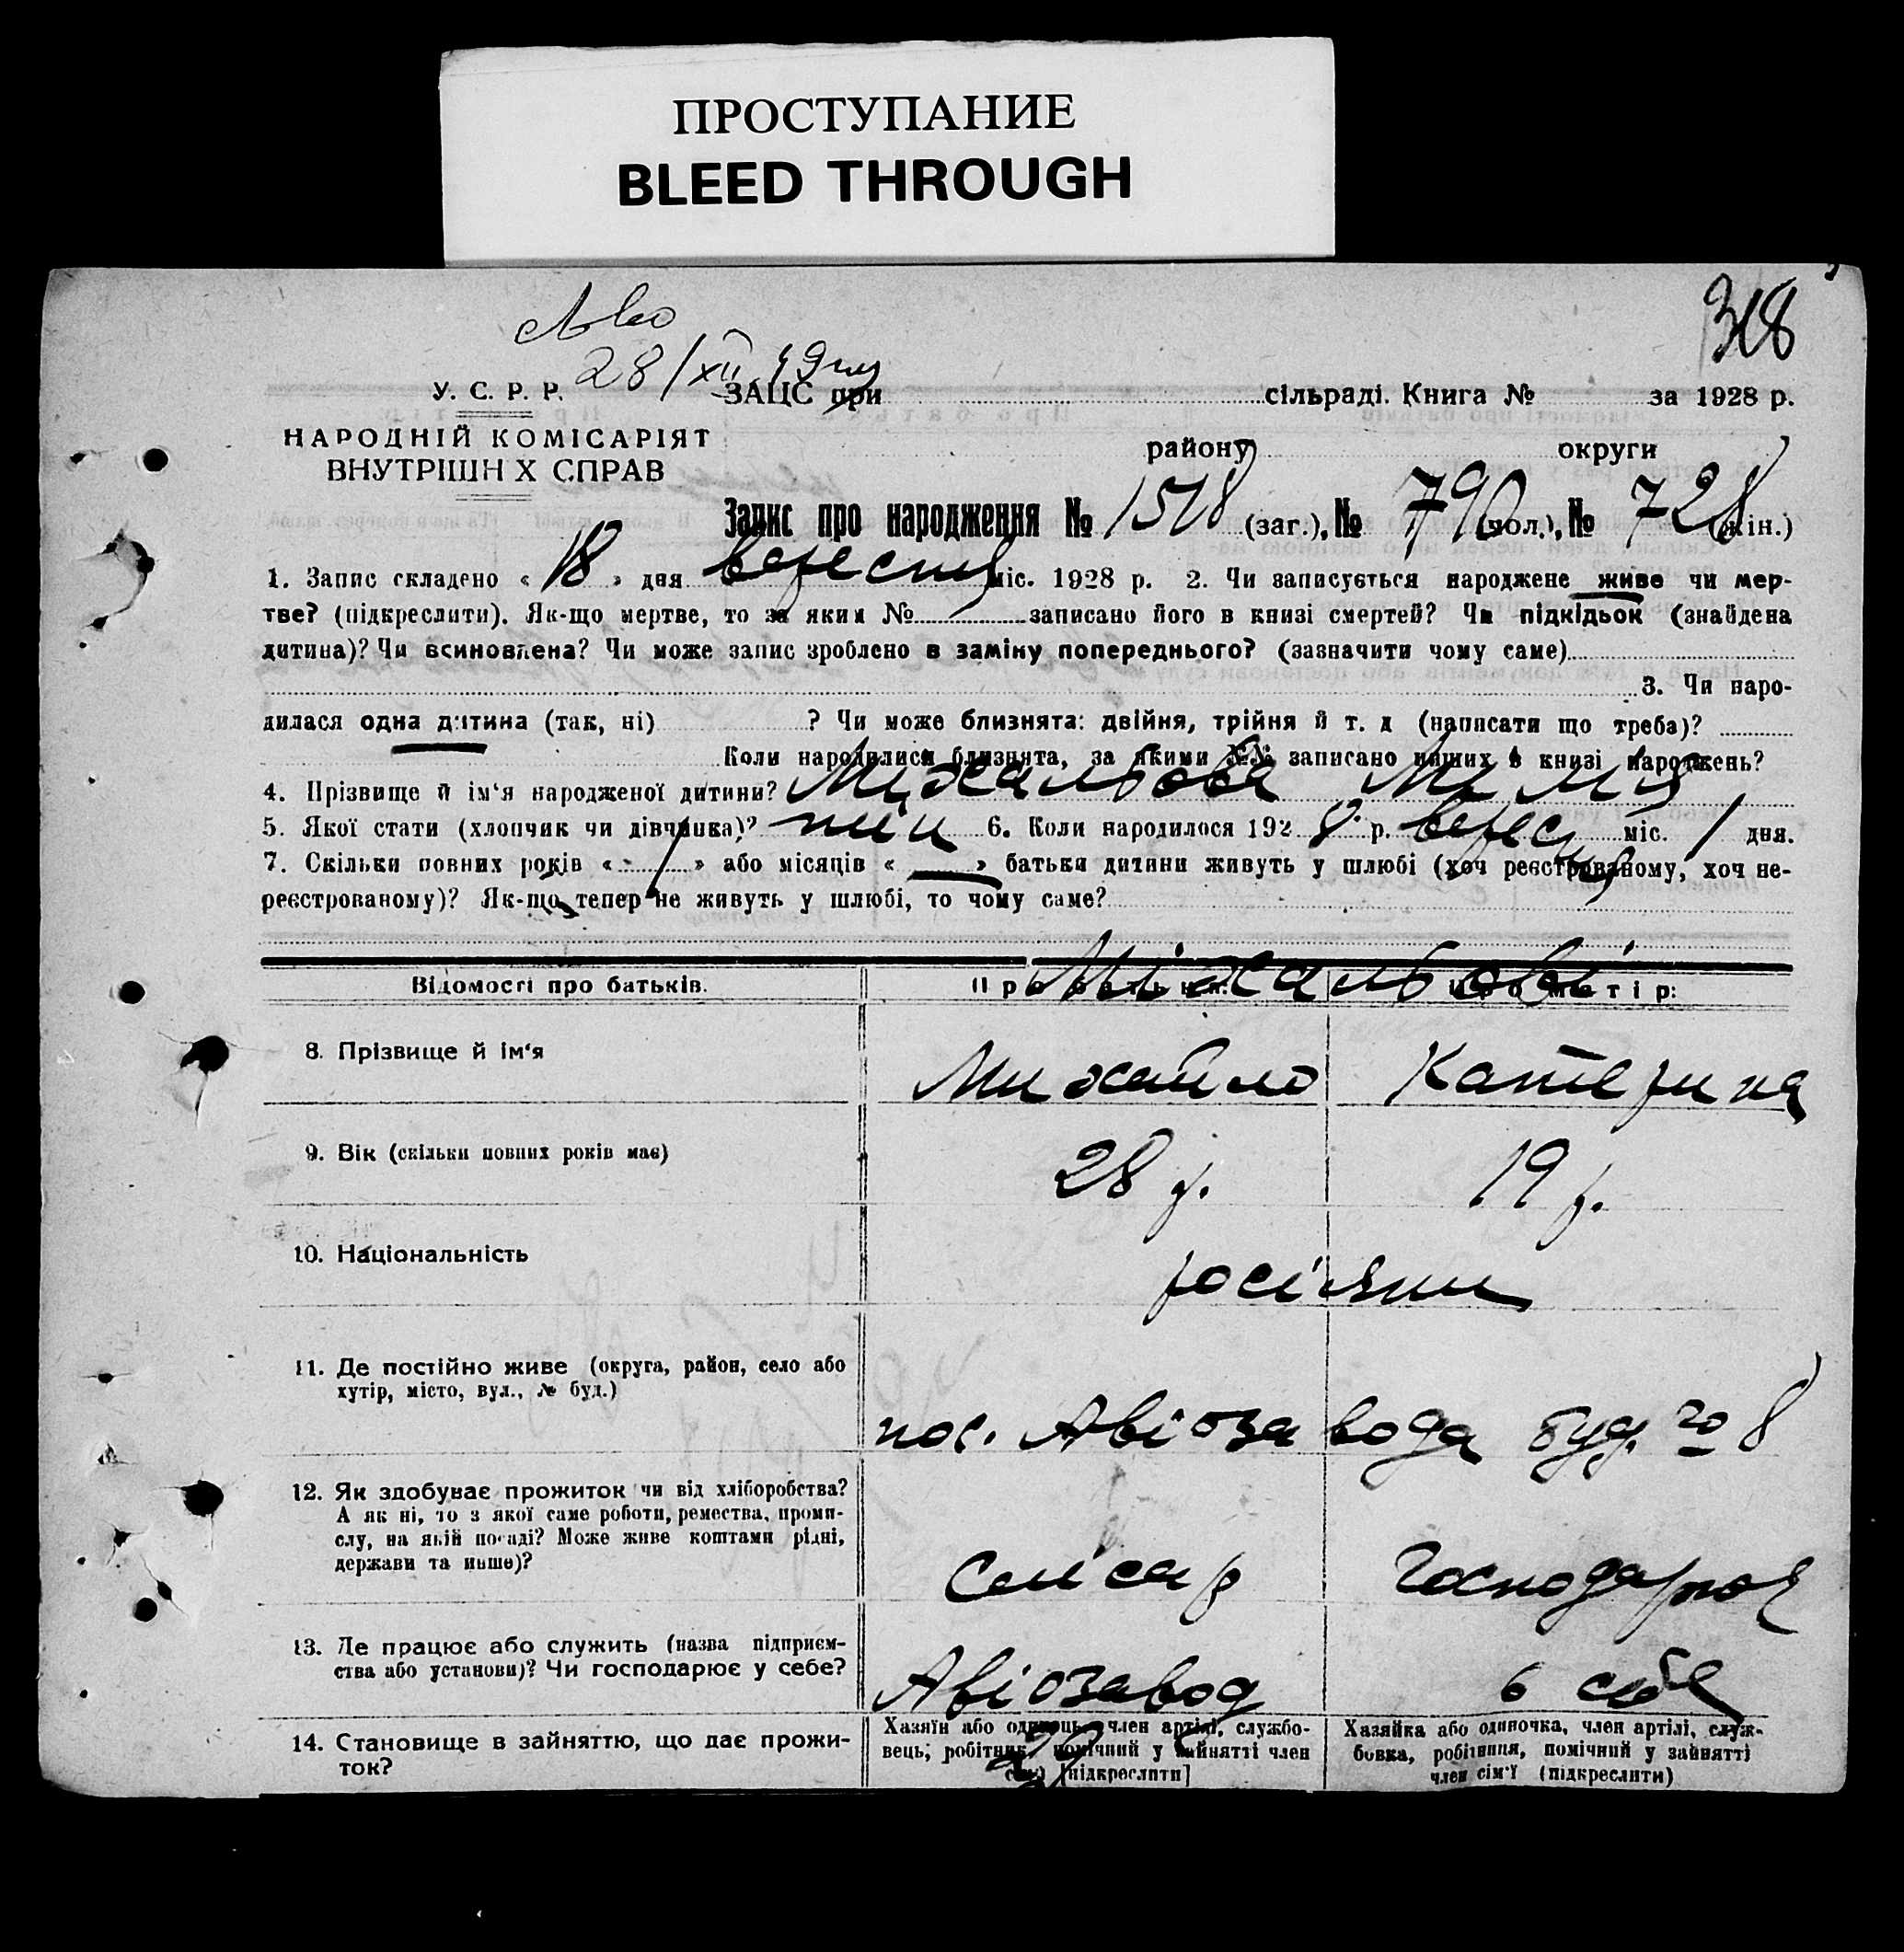 ПРОСТУПАНИЕ
BLEED THROUGH
318
28/XII 49
У. С. Р. Р.
ЗАЦС при сільраді. Книга № за 1928 р.
НАРОДНІЙ КОМІСАРІЯТ
ВНУТРІШН Х СПРАВ
району округи
Запис про народження № 1518 (заг.), № 790 (чол.), № 728 (жін.)
1. Запис складено « 18 » дня вересня міс. 1928 р. 2. Чи записується народжене живе чи мер-
тве? (підкреслити). Як-що мертве, то за яким № записано його в книзі смертей? Чи підкідьок (знайдена
дитина)? Чи всиновлена? Чи може запис зроблено в заміну попереднього? (зазначити чому саме)
3. Чи наро-
дилася одна дитина (так, ні) ? Чи може близнята: двійня, трійня й т. д (написати що треба)?
Коли народилися близнята, за якими №№ записано инших в книзі народжень?
4. Прізвище й ім'я народженої дитини? Михальова
5. Якої стати (хлопчик чи дівчинка)? жін 6. Коли народилося 1928 р. вересня міс. 1 дня.
7. Скільки повних років « 1 » або місяців « — » батьки дитини живуть у шлюбі (хоч реєстрованому, хоч не-
реєстрованому)? Як-що тепер не живуть у шлюбі, то чому саме?
Міхальові
Відомості про батьків. Про батька: Про матір:
8. Прізвище й ім'я
Михайло Катерина
9. Вік (скільки повних років має)
28 р. 19 р.
10. Національність
росіяни
11. Де постійно живе (округа, район, село або
хутір, місто, вул., № буд.)
пос. Авіозавода буд. № 8
12. Як здобуває прожиток чи від хліборобства?
А як ні, то з якої саме роботи, ремества, проми-
слу, на якій посаді? Може живе коштами рідні,
держави та инше)?
Слісар Господарює
13. Де працює або служить (назва підприєм-
ства або установи)? Чи господарює у себе?
Авіозавод в себе
14. Становище в зайняттю, що дає прожи-
ток?
Хазяїн або одинець, член артілі, службо-
вець, робітник, помічний у зайнятті член
сім'ї [підкреслити]
Хазяйка або одиночка, член артілі, служ-
бовка, робітниця, помічний у зайнятті
член сім'ї (підкреслити)